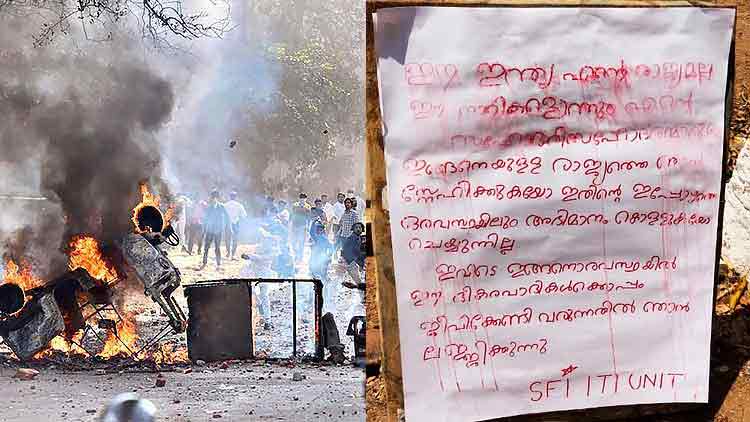 ഈ ഇന്ത്യ എന്റെ രാജ്യമല്ല
ഈ
ഇങ്ങനെയുള്ള രാജ്യത്തെ
സ്നേഹിക്കുകയോ ഇതിന്റെ ഇപ്പോഴത്തെ
അവസ്ഥയിലും അഭിമാനം കൊള്ളുകയോ
ചെയ്യുന്നില്ല
ഇവിടെ ഇങ്ങനൊരവസ്ഥയിൽ
ഈ ഭീകരവാദികൾക്കൊപ്പം
ജീവിക്കേണ്ടി വരുന്നതിൽ ഞാൻ
ലജ്ജിക്കുന്നു
SFI ITI UNIT